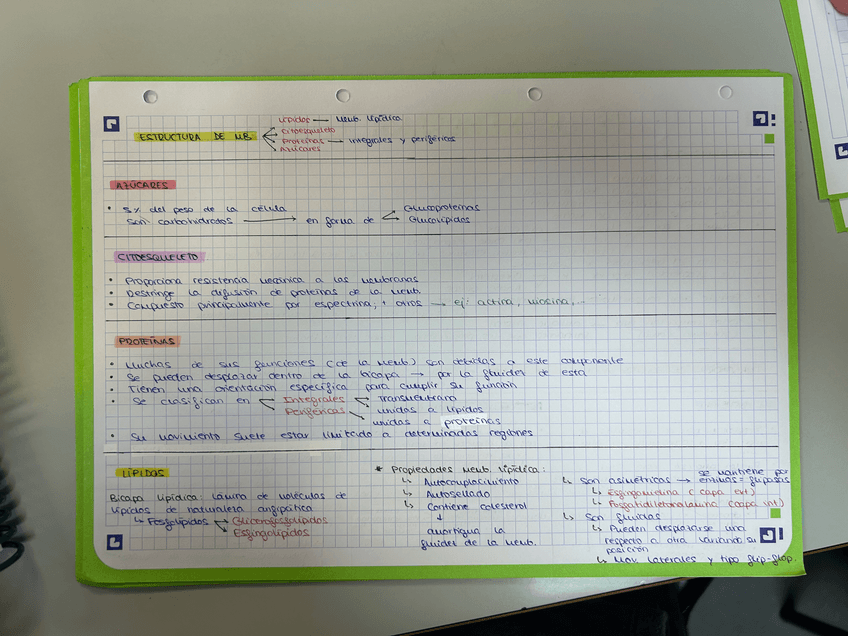 Lípidos — Memb. lipídica
ESTRUCTURA DE MB. Citoesqueleto
Proteínas → Integrales y periféricas
Azúcares
AZÚCARES
• 5% del peso de la célula
Son carbohidratos → en forma de Glucoproteínas
Glucolípidos
CITOESQUELETO
• Proporciona resistencia mecánica a las membranas
• Restringe la difusión de proteínas de la memb.
• Compuesto principalmente por espectrina, + otros → ej: actina, miosina,...
PROTEÍNAS
• Muchas de sus funciones (de la memb) son debidas a este componente
• Se pueden desplazar dentro de la bicapa → por la fluidez de esta
• Tienen una orientación específica para cumplir su función
• Se clasifican en Integrales Transmembrana
Periféricas unidas a lípidos
unidas a proteínas
• Su movimiento suele estar limitado a determinadas regiones
LÍPIDOS
Bicapa lipídica: lámina de moléculas de
lípidos de naturaleza anfipática
↳ Fosfolípidos Glicerofosfolípidos
Esfingolípidos
* Propiedades memb. lipídica:
↳ Autoacoplamiento
↳ Autosellado
↳ Contiene colesterol
↓
amortigua la
fluidez de la memb.
↳ Son asimétricas → se mantiene por
enzimas = flipasas
↳ Esfingomielina (capa ext)
↳ Fosfatidiletanolamina (capa int)
↳ Son fluidas
↳ Pueden desplazarse una
respecto a otra variando su
posición
↳ Mov. laterales y tipo flip-flop.